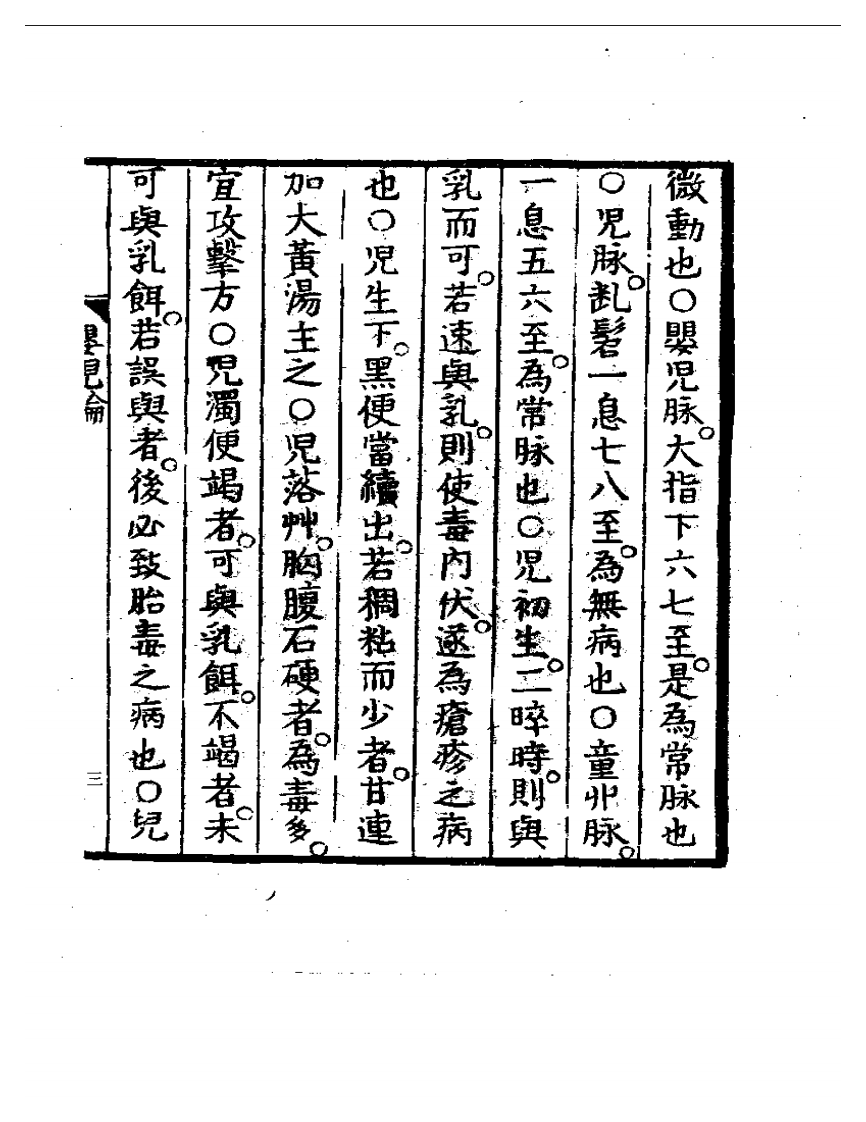 微動也○嬰児脉。大指下六七至。是為常脉也
○児脉。乱髫一息七八至。為無病也○童丱脉。
一息五六至。為常脉也○児初生。二晬時。則與
乳而可。若速與乳。則使毒内伏。遂為瘡疹之病
也○児生下。黒便當續出。若稠粘而少者。甘連
加大黃湯主之○児落艸。胸腹石硬者。為毒多。
宜攻擊方○児濁便竭者。可與乳餌。不竭者。未
可與乳餌。若誤與者。後必致胎毒之病也○兒
嬰児論
三